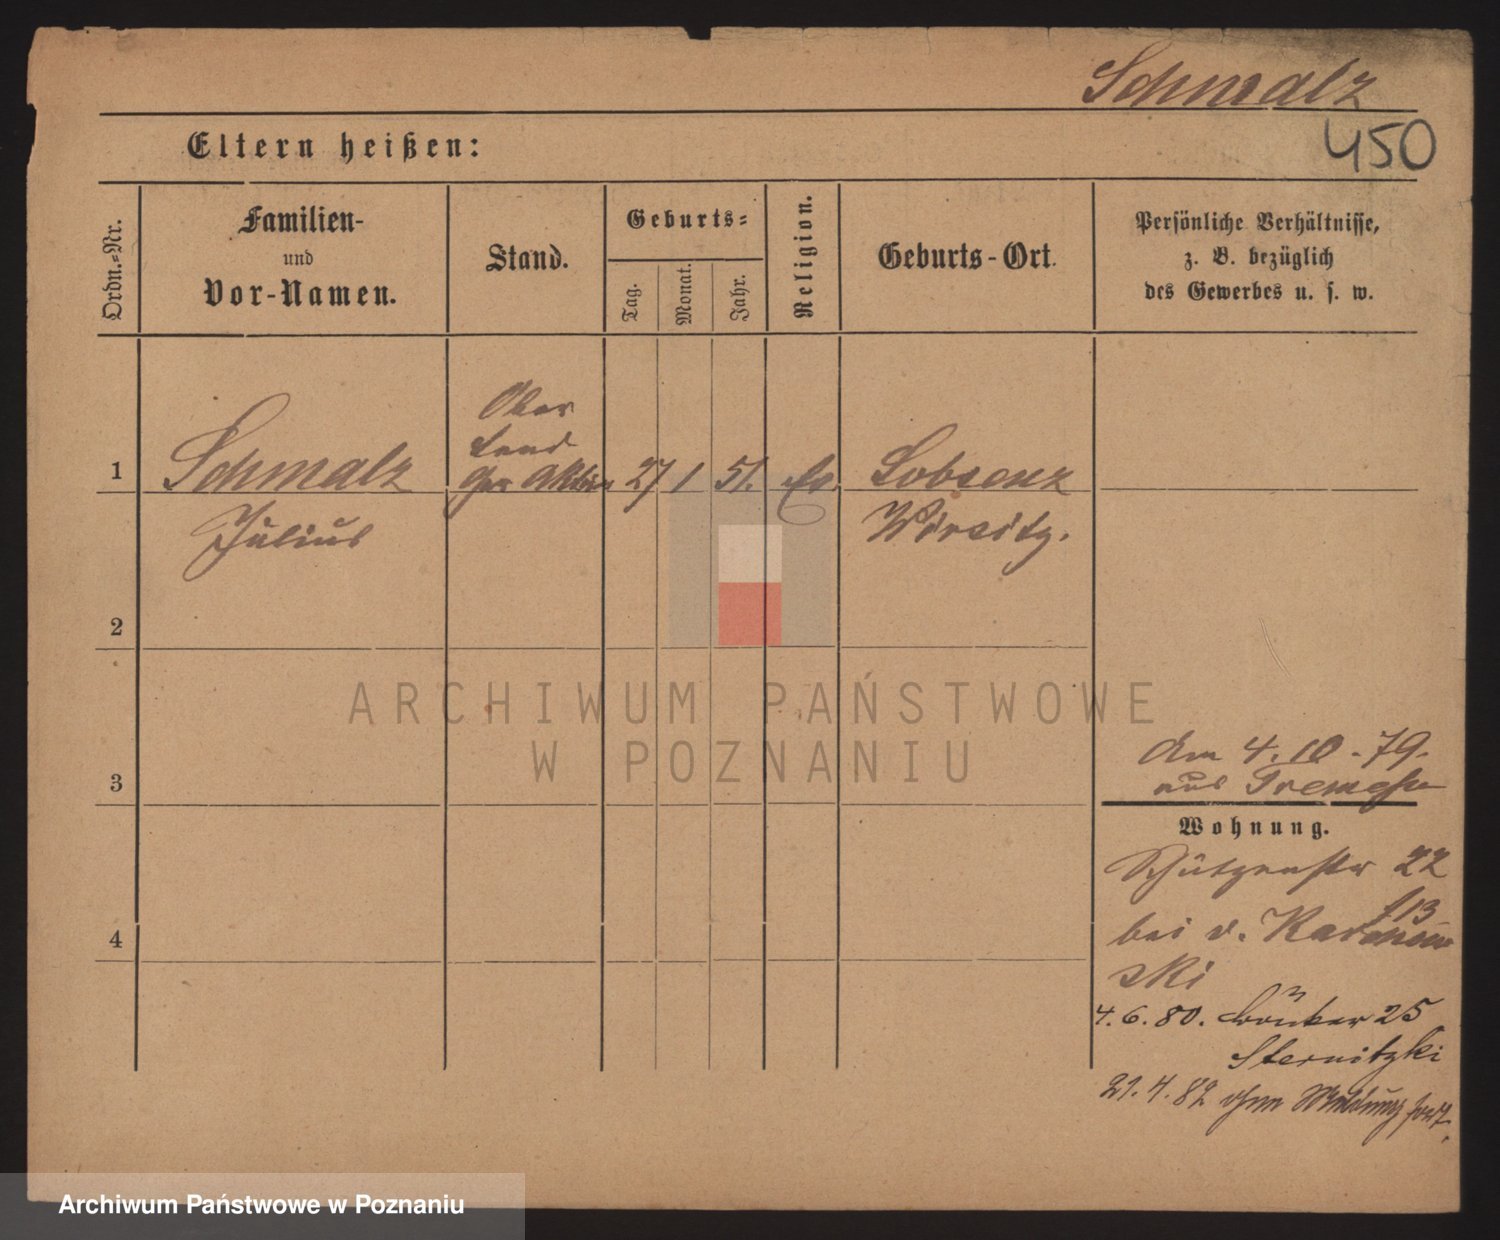 Schmalz
450
Eltern heißen:
Ordn.-Nr.
Familien-
und
Vor-Namen.
Stand.
Geburts-
Tag.
Monat.
Jahr.
Religion.
Geburts-Ort.
Persönliche Verhältnisse,
z. B. bezüglich
des Gewerbes u. s. w.
1
Schmalz
Julius
Ober
Land
Ger Aktuar
27
1
51.
Ev.
Lobsenz
Wirsitz.
2
ARCHIWUM PAŃSTWOWE
W POZNANIU
3
Am 4. 10. 79.
aus Tremessen
Wohnung.
Schützenstr 22
bei v.
ski
4
4. 6. 80. 25
Sternitzki
21. 4. 82 ohne Meldung fort.
Archiwum Państwowe w Poznaniu